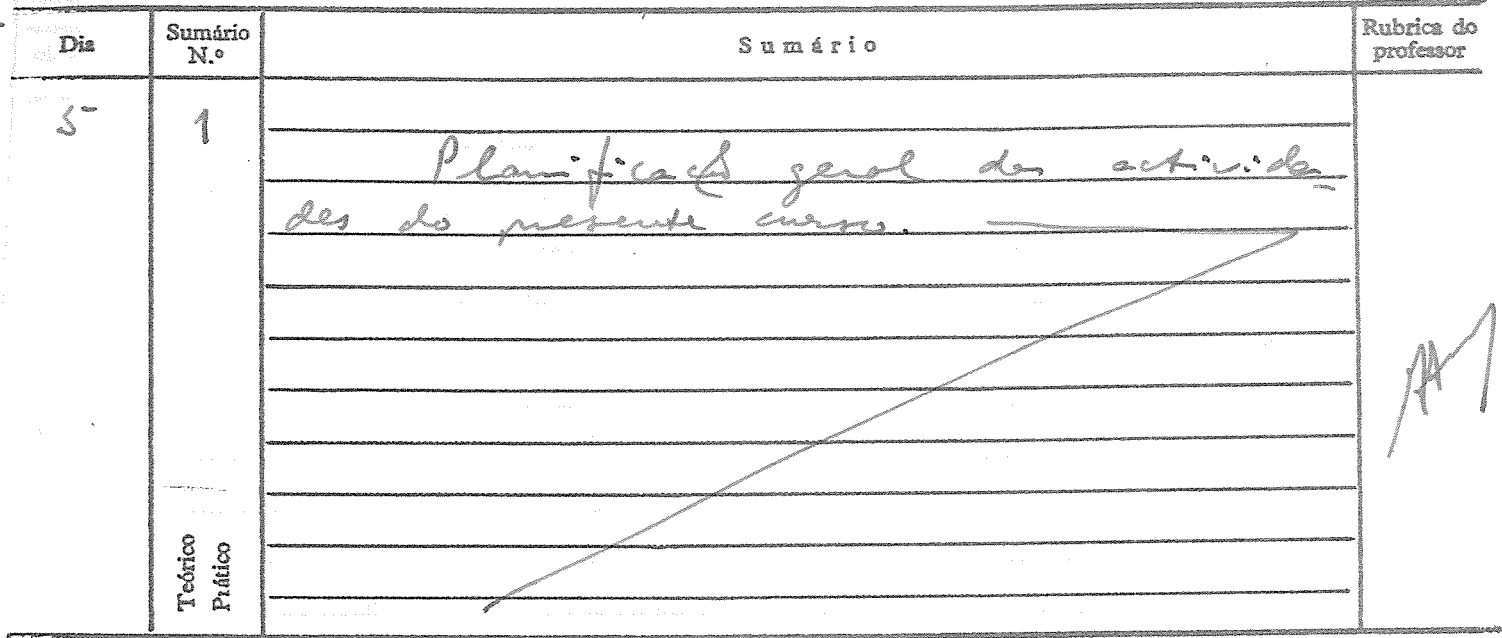 Dia
Sumário
N.º
Sumário
Rubrica do
professor
5
1
Planificação geral das activida
des do presente curso.
Teórico
Prático